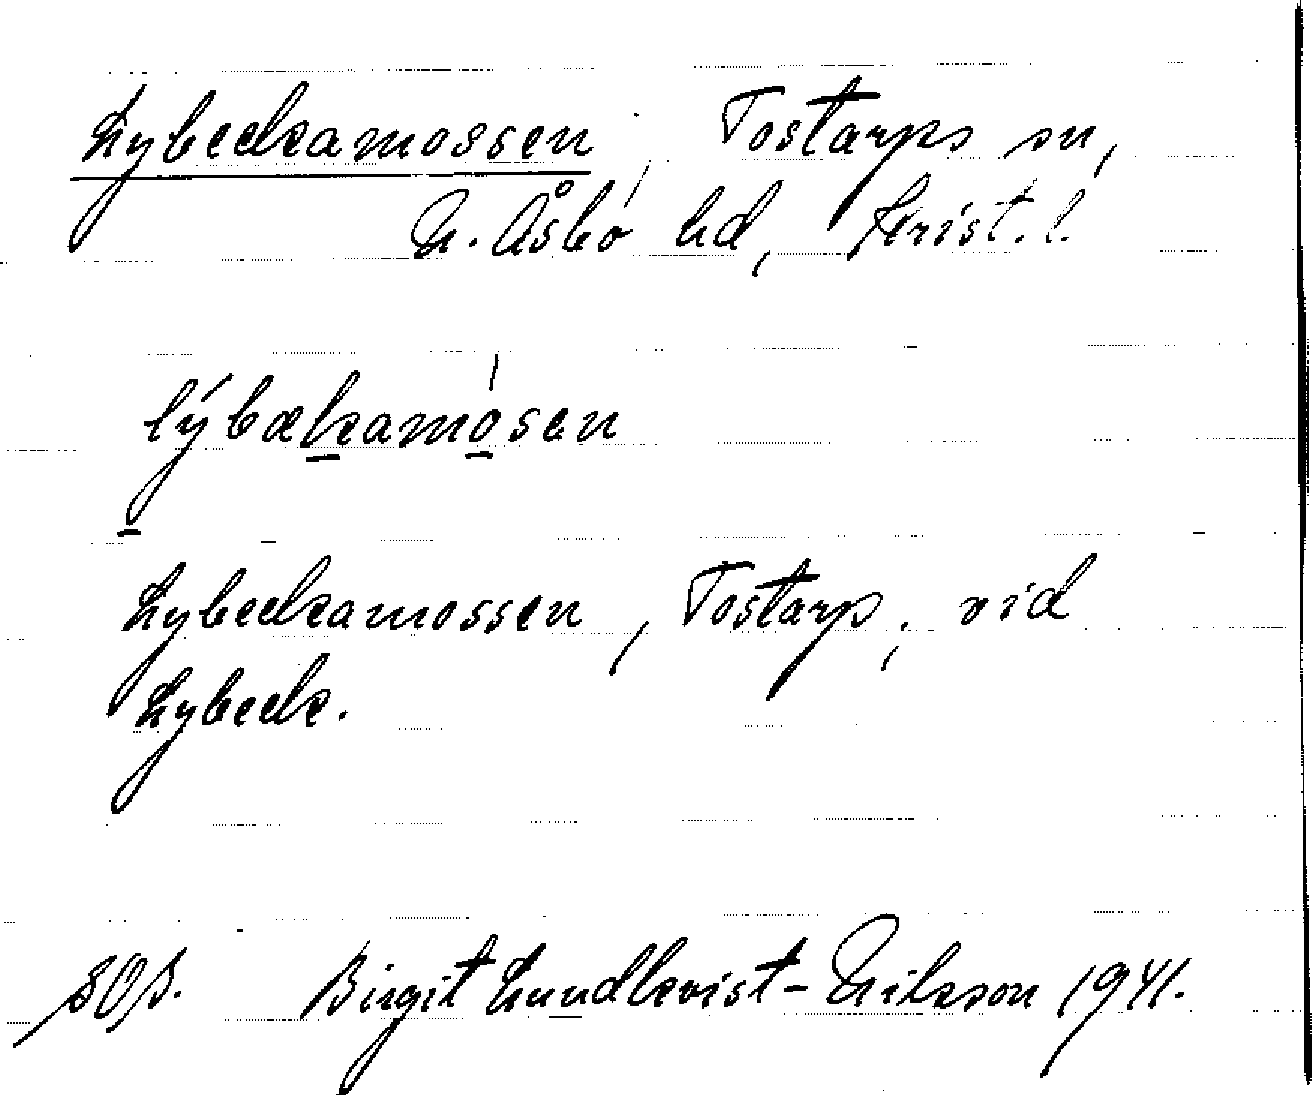 Lybeckamossen, Tostarps sn,
N. Åsbo hd, Krist. l.
lýbækamósen
Lybeckamossen, Tostarp, vid
Lybeck.
SOS. Birgit Lundkvist-Nilsson 1941.